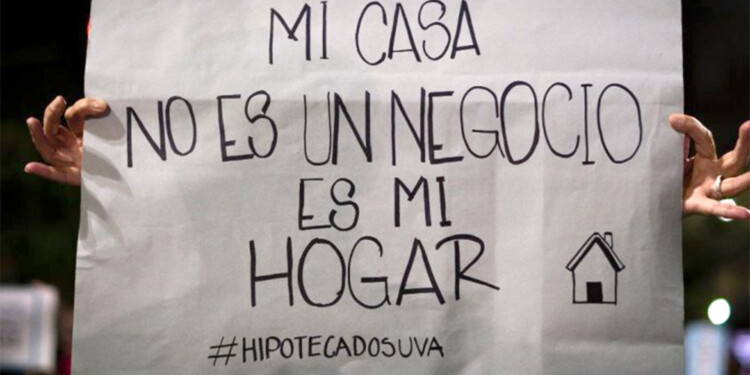 MI CASA
NO ES UN NEGOCIO
ES MI
HOGAR
#HIPOTECADOSUVA